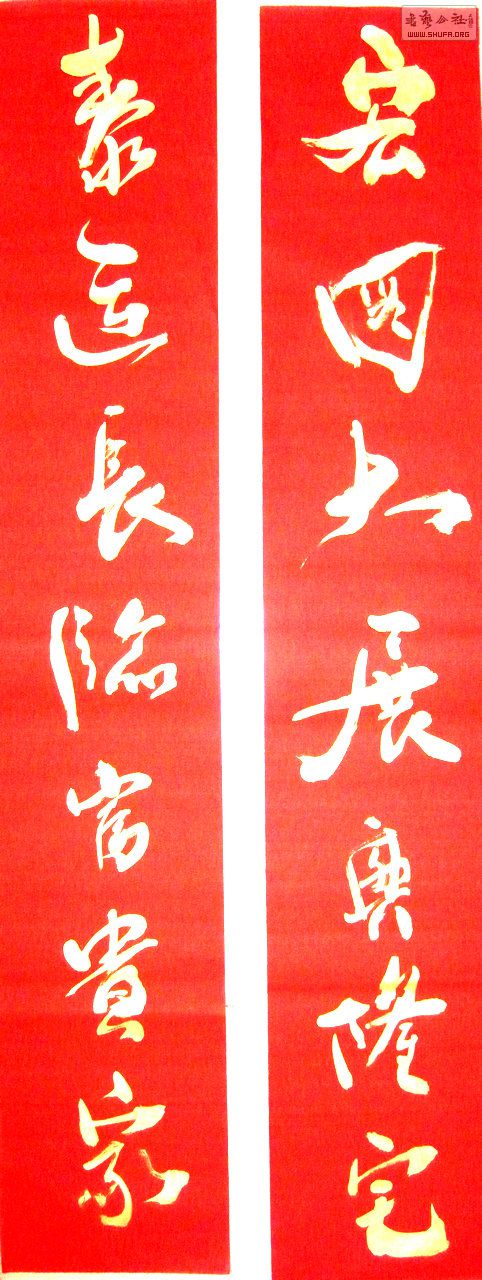 宏圖大展興隆宅
泰運長臨富貴家
WWW.SHUFA.ORG